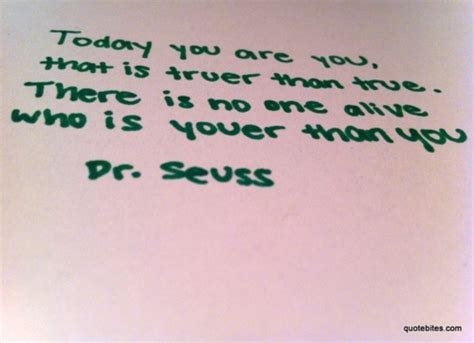 Today you are you,
that is truer than true.
There is no one alive
who is youer than you
Dr. Seuss
quotebites.com